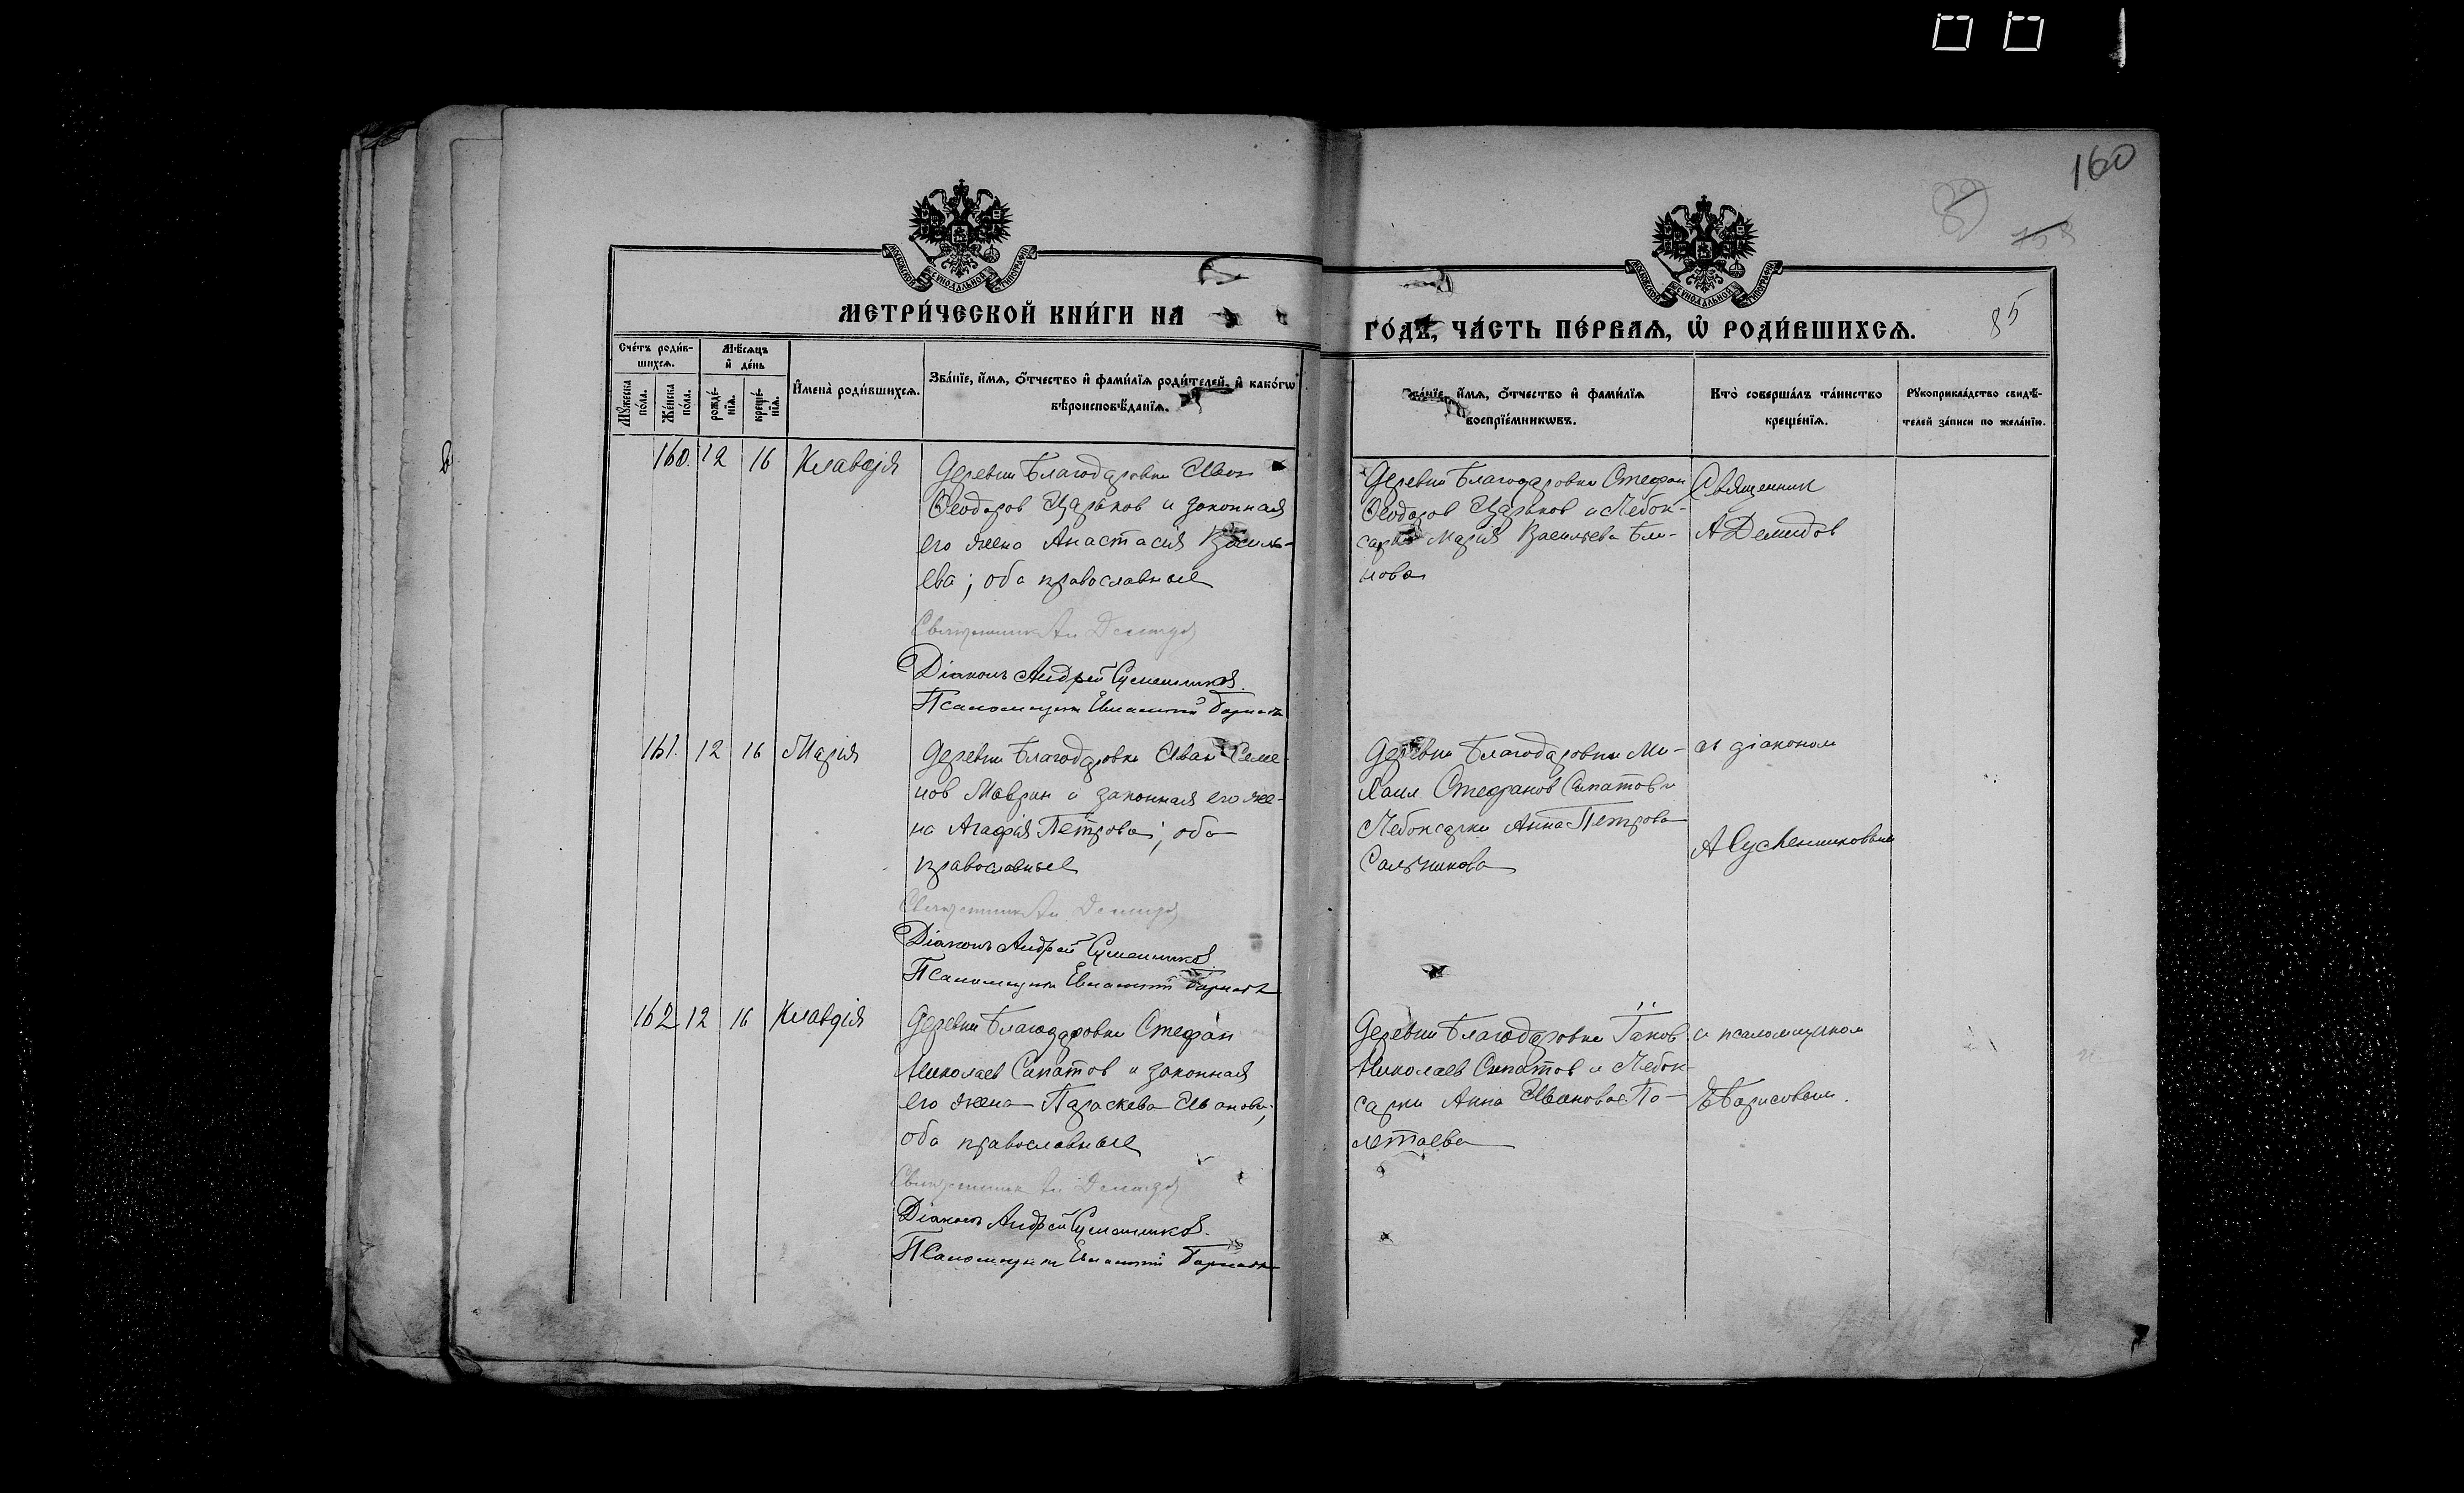 160
85
МЕТРИ́ЧЕСКОЙ КНИ́ГИ НА
ГО́ДЪ, ЧА́СТЬ ПЕ́РВАѦ, Ѽ РОДИ́ВШИХСѦ.
Сче́тъ роди́в-
шихсѧ.
Мꙋ́жеска по́ла.
Же́нска по́ла.
Мѣ́сѧцъ
и҆ де́нь
рожде́-
нїѧ.
креще́-
нїѧ.
И҆мена̀ роди́вшихсѧ.
Зва́нїе, и҆́мѧ, ѻ҆́тчество и҆ фами́лїѧ роди́телей, и҆ како́гѡ
вѣроисповѣ́данїѧ.
Зва́нїе, и҆́мѧ, ѻ҆́тчество и҆ фами́лїѧ
воспрїе́мникѡвъ.
Кто̀ соверша́лъ та́инство
креще́нїѧ.
Рꙋкоприкла́дство свидѣ́-
телей за́писи по жела́нїю.
160. 12 16 Клавдія
Деревни Благодаровки Иван
Ѳеодоров Царьков и законная
его жена Анастасія Василь-
ева; оба православные
Священник Ан Демидов
Діаконъ Андрей Сушенциков
Псаломщик Евлампий Борисовъ
Деревни Благодаровки Стефан
Ѳеодоров Царьков и Чебок-
сарки Марія Васильева Бли-
нова
Священник
А Демидов
161. 12 16 Марія
Деревни Благодаровки Иван Семе-
нов Маврин и законная его же-
на Агафія Петрова; оба
православные
Священник Ан Демидов
Діаконъ Андрей
Псаломщик Евлампий Борисовъ
Деревни Благодаровки Ми-
хаил Стефанов Сипатов и
Чебоксарки Анна Петрова
Сальникова
съ діаконом
А
162 12 16 Клавдія
Деревни Благодаровки Стефан
Николаев Сипатов и законная
его жена Параскева Иванова;
оба православные
Священник Ан Демидов
Діаконъ Андрей
Псаломщик Евлампий Борисовъ
Деревни Благодаровки Іаков
Николаев Сипатов и Чебок-
сарки Анна Иванова По-
летаева
и псаломщиком
Е Борисовым.